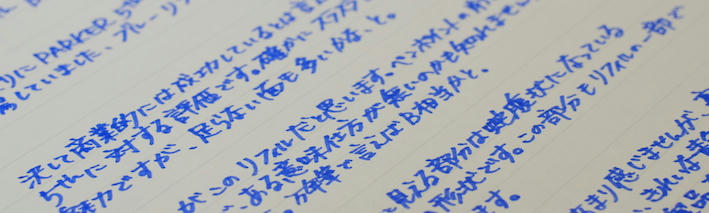 りにPARKER 5th
していました、ブルーリフ
決して商業的には成功しているとは言
ちゃんに対する評価です。確かにスラスラ
魅力ですが、足らない面も多いかな、と。
がこのリフィルだと思います。ペンポイントの形
、ある意味仕方が無いのかも知れません
万年筆で言えばB相当かと。
と見える部分は蛇腹状になっている
の形状です。この部分もリフィルの一部で
ます。
まり感じませんが、